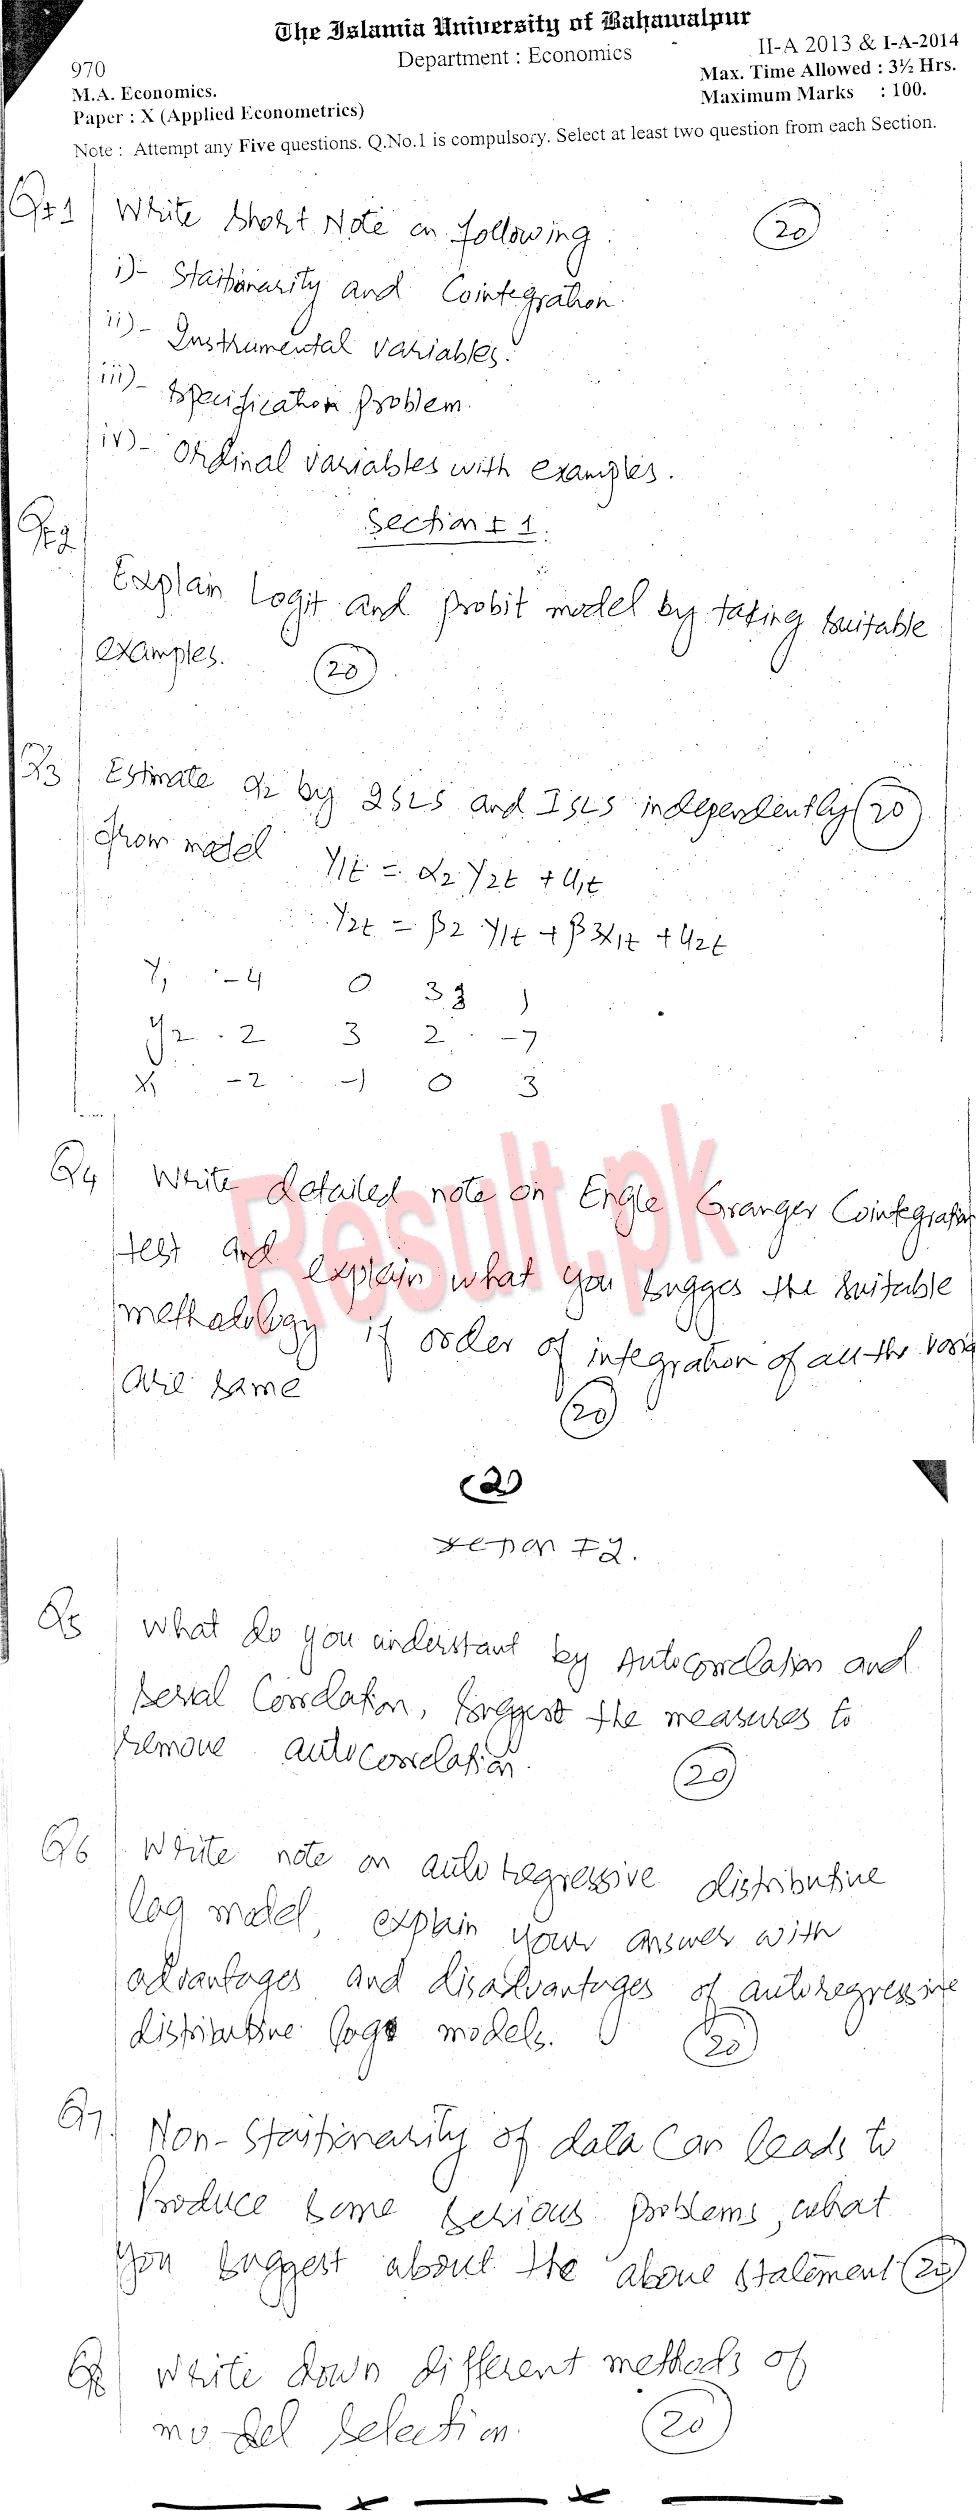 The Islamia University of Bahawalpur
Department : Economics
II-A 2013 & I-A-2014
970
M.A. Economics.
Paper : X (Applied Econometrics)
Max. Time Allowed : 3½ Hrs.
Maximum Marks : 100.
Note : Attempt any Five questions. Q.No.1 is compulsory. Select at least two question from each Section.
Q#1 Write Short Note on following : (20)
i)- Stationarity and Cointegration.
ii)- Instrumental variables.
iii)- Specification Problem.
iv)- Ordinal variables with examples.
Section # 1.
Q#2
Explain Logit and Probit model by taking suitable
examples. (20)
Q3 Estimate α2 by 2SLS and ISLS independently (20)
from model Y1t = α2 Y2t + U1t
Y2t = β2 Y1t + β3X1t + U2t
Y1 -4 0 3 1
Y2 2 3 2 -7
X1 -2 -1 0 3
Q4 Write detailed note on Engle Granger Cointegration
test and explain what you sugges the suitable
methodology if order of integration of all the
are same
(20)
Result.pk
(2)
Section # 2.
Q5 What do you understant by Autocorrelation and
Serial Correlation, Suggest the measures to
remove autocorrelation. (20)
Q6 Write note on auto regressive distributive
lag model, explain your answer with
advantages and disadvantages of autoregressive
distributive lags models. (20)
Q7. Non-Stationarity of data can leads to
Produce some serious problems, what
you suggest about the above statement (20)
Q8 Write down different methods of
model selection. (20)